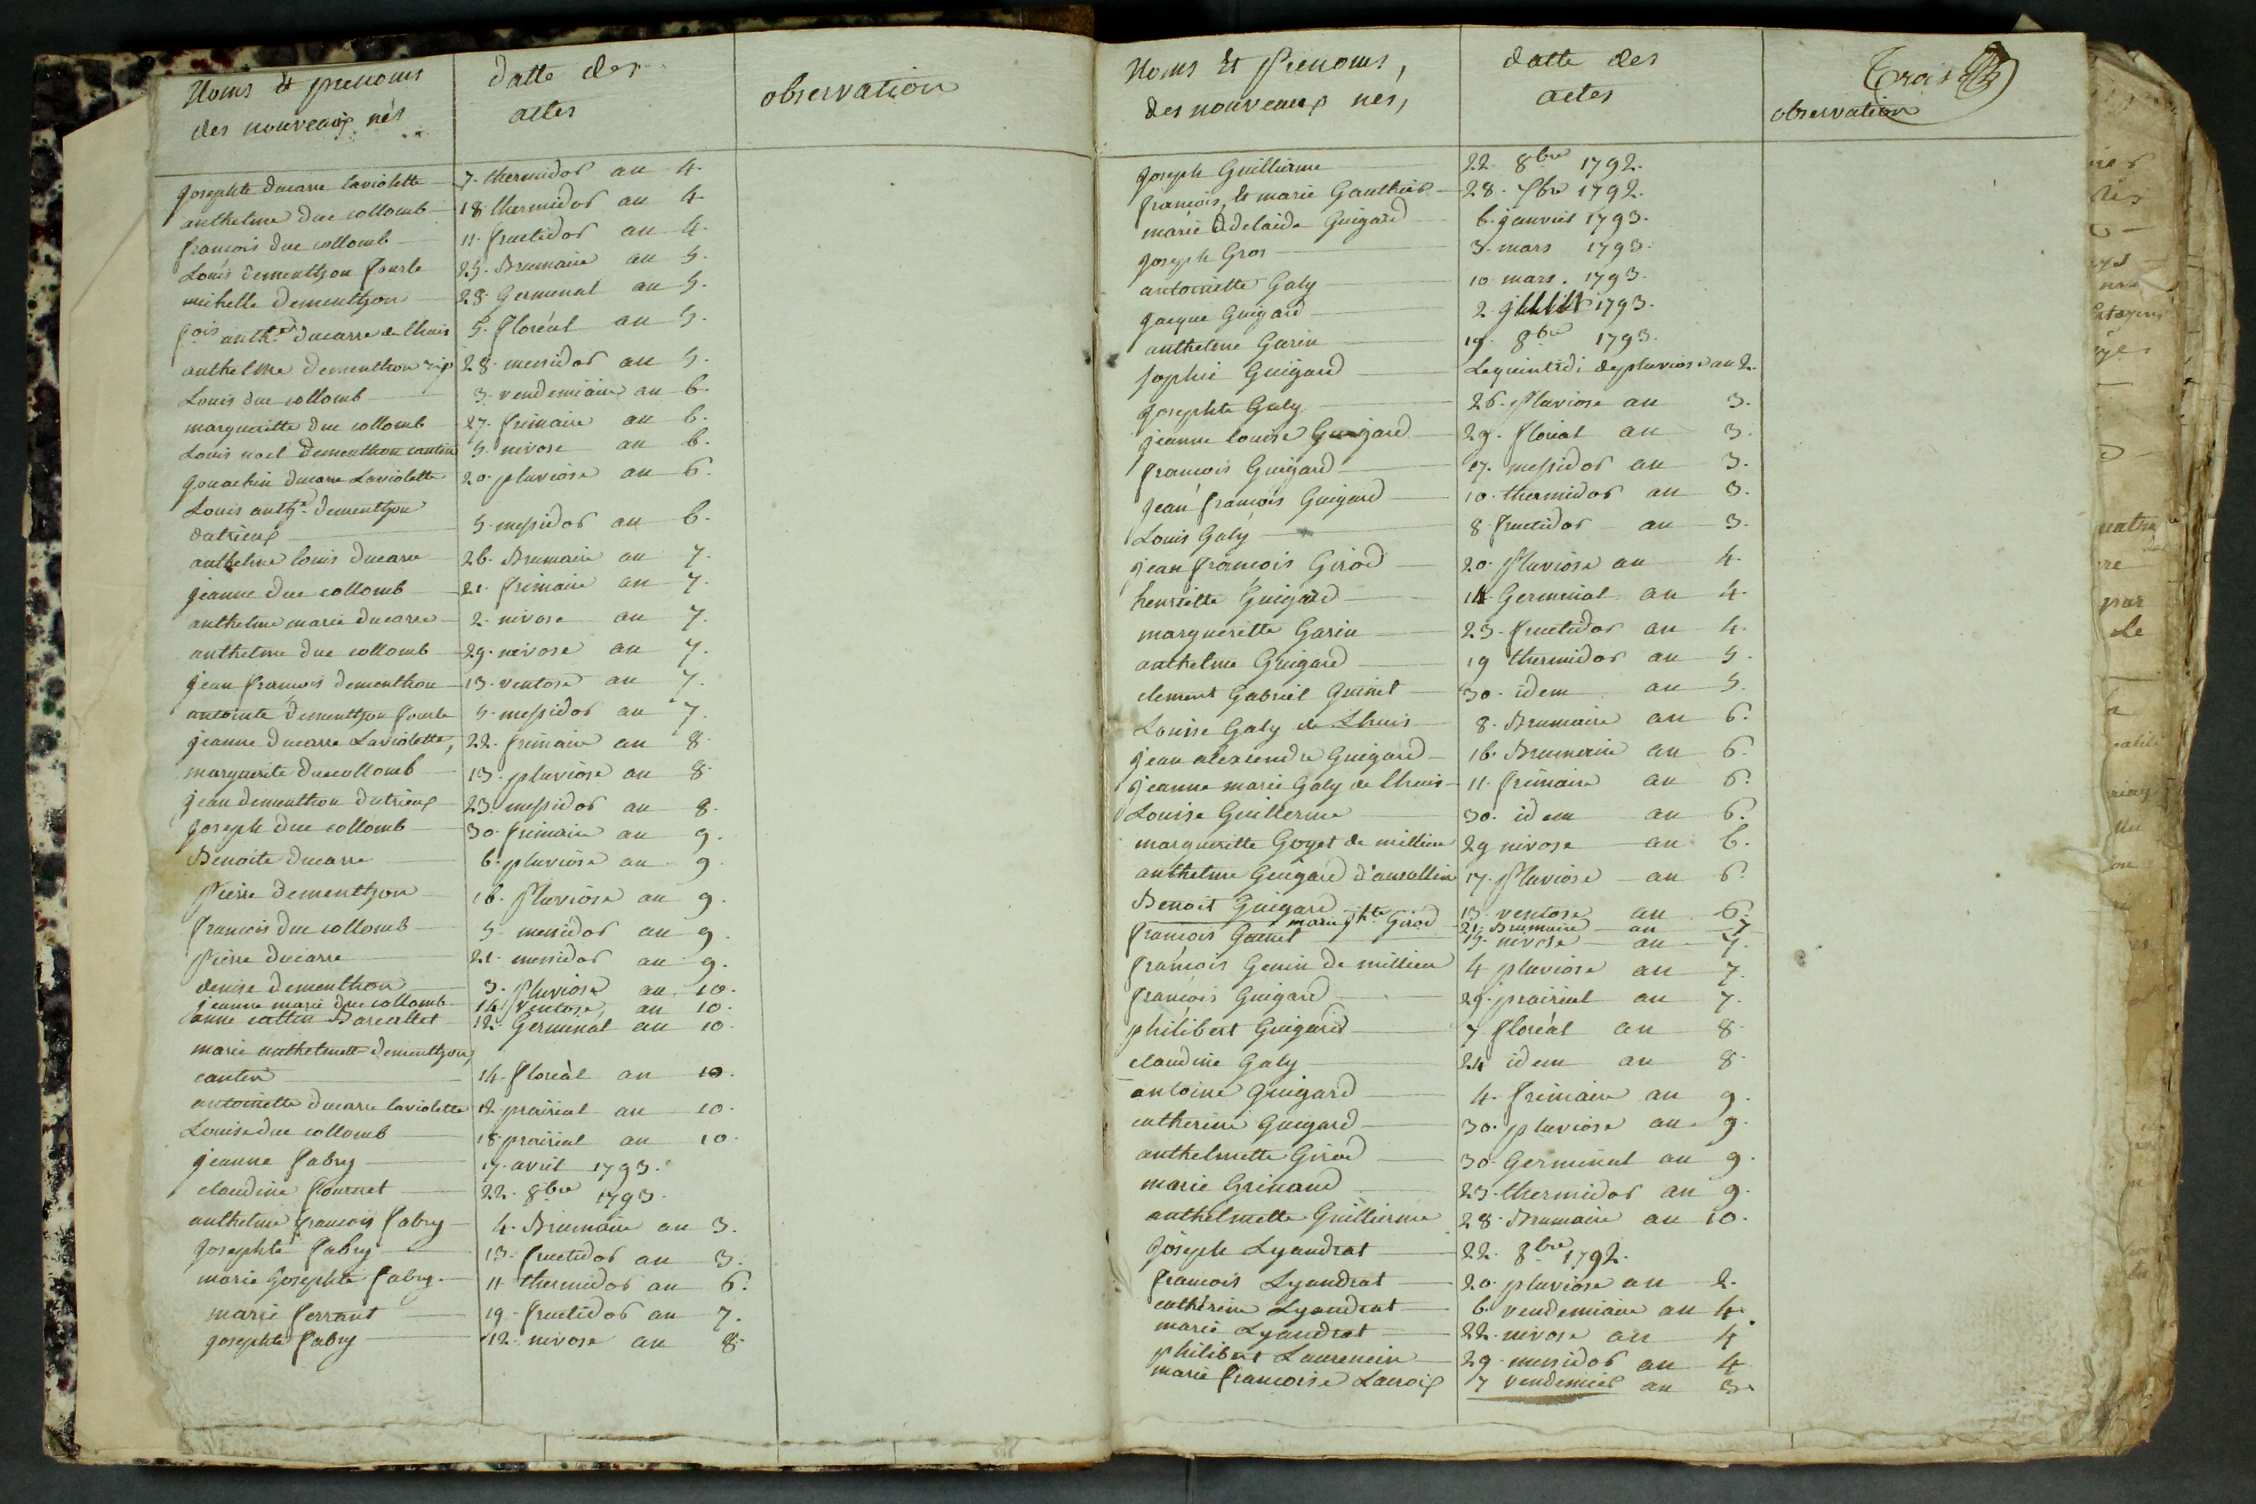 Noms et prenoms
des nouveaux nés
datte des
actes
observation
Josephte ducarre laviolette 7. thermidor an 4.
anthelme duc collomb 18 thermidor an 4.
françois duc collomb 11. fructidor an 4.
Louis dementhon fourle 25. Brumaire an 5.
michelle dementhon 28. Germinal an 5.
fois anth.e ducarre de lhuis 5. floréal an 5.
anthelme dementhon 28. messidor an 5.
Louis duc collomb 3. vendemiaire an 6.
margueritte duc collomb 27. frimaire an 6.
Louis noel dementhon cantin 5. nivose an 6.
Joachin ducarre Laviolette 20. pluviose an 6.
Louis anth.e dementhon
dutrieux 5. messidor an 6.
anthelme louis ducarre 26. Brumaire an 7.
jeanne duc collomb 21. frimaire an 7.
anthelme marie ducarre 2. nivose an 7.
anthelme duc collomb 29. nivose an 7.
jean françois dementhon 13. ventose an 7.
antointe dementhon fourle 5. messidor an 7.
jeanne ducarre Laviolette, 22. frimaire an 8.
marguerite duc collomb 13. pluviose an 8.
jean dementhon dutrieux 23. messidor an 8.
Joseph duc collomb 30. frimaire an 9.
Benoite ducarre 6. pluviose an 9.
Pierre dementhon 16. Pluviose an 9.
françois duc collomb 5. messidor an 9.
Pierre ducarre 21. messidor an 9.
denise dementhon 3. Pluviose an 10.
jeanne marie duc collomb 14 Ventose, an 10.
anne cattin Barcallet 12. Germinal an 10.
marie anthelmette dementhon,
cantin 14. floréal an 10.
antoinette ducarre laviolette 12. prairial an 10.
Louise duc collomb 18 prairial an 10.
jeanne fabry 17. avril 1793.
claudine fournet 22. 8bre 1793.
anthelme françois fabry 4. Brumaire an 3.
Josephte fabry 13. fructidor an 3.
marie Josephte fabry 11 thermidor an 6.
marie ferrant 19. fructidor an 7.
josephte fabry 12. nivose an 8.
Noms et Prenoms,
des nouveaux nés,
datte des
actes
Trois
observation
Joseph Guillierme 22. 8bre 1792.
françois, le marie Gauthier 28. 7bre 1792.
marie Adelaide Guigard 6. janvier 1793.
Joseph Gros 3. mars 1793.
antoinette Galy 10 mars. 1793.
Jacque Guigard 2. 1793.
anthelme Garin 19. 8bre 1793.
Sophie Guigard Le quintidi de pluviose an 2.
Josephte Galy 26. Pluviose an 3.
jeanne louise Guigard 29. floréal an 3.
françois Guigard 17. messidor an 3.
Jean françois Guigard 10. thermidor an 3.
Louis Galy 8. fructidor an 3.
jean françois Girod 20. Pluviose an 4.
henriette Guigard 14. Germinal an 4.
margueritte Garin 23. fructidor an 4.
anthelme Guigard 19 thermidor an 5.
clement Gabriel Guinet 30. idem an 5.
Louise Galy de Lhuis 8. Brumaire an 6.
jean alexendre Guigard 16. Brumaire an 6.
jeanne marie Galy de lhuis 11. frimaire an 6.
Louise Guillerme 30. idem an 6.
margueritte Goyet de millieu 29 nivose an 6.
anthelme Guigard d'ansollin 17. Pluviose an 6.
Benoit Guigard 13. ventose an 6.
marie jhte Girod 21. Brumaire an 7
françois Guinet 15. nivose an 7.
françois Genin de millieu 4 pluviose an 7.
françois Guigard 29. prairial an 7.
philibert Guigard 7 floréal an 8.
claudine Galy 24 idem an 8.
antoine Guigard 4. frimaire an 9.
catherine Guigard 30. pluviose an 9.
anthelmette Girod 30. Germinal an 9.
marie Grinand 23. thermidor an 9.
anthelmette Guillierme 28. Brumaire an 10.
Joseph Lyandrat 22. 8bre 1792.
françois Lyandrat 20. pluviose an 2.
catherine Lyandrat 6. vendemiaire an 4.
marie Lyandrat 22. nivose an 4.
philibert Laurencin 29. messidor an 4
marie francoise Lacroix 7 vendemier an 5.